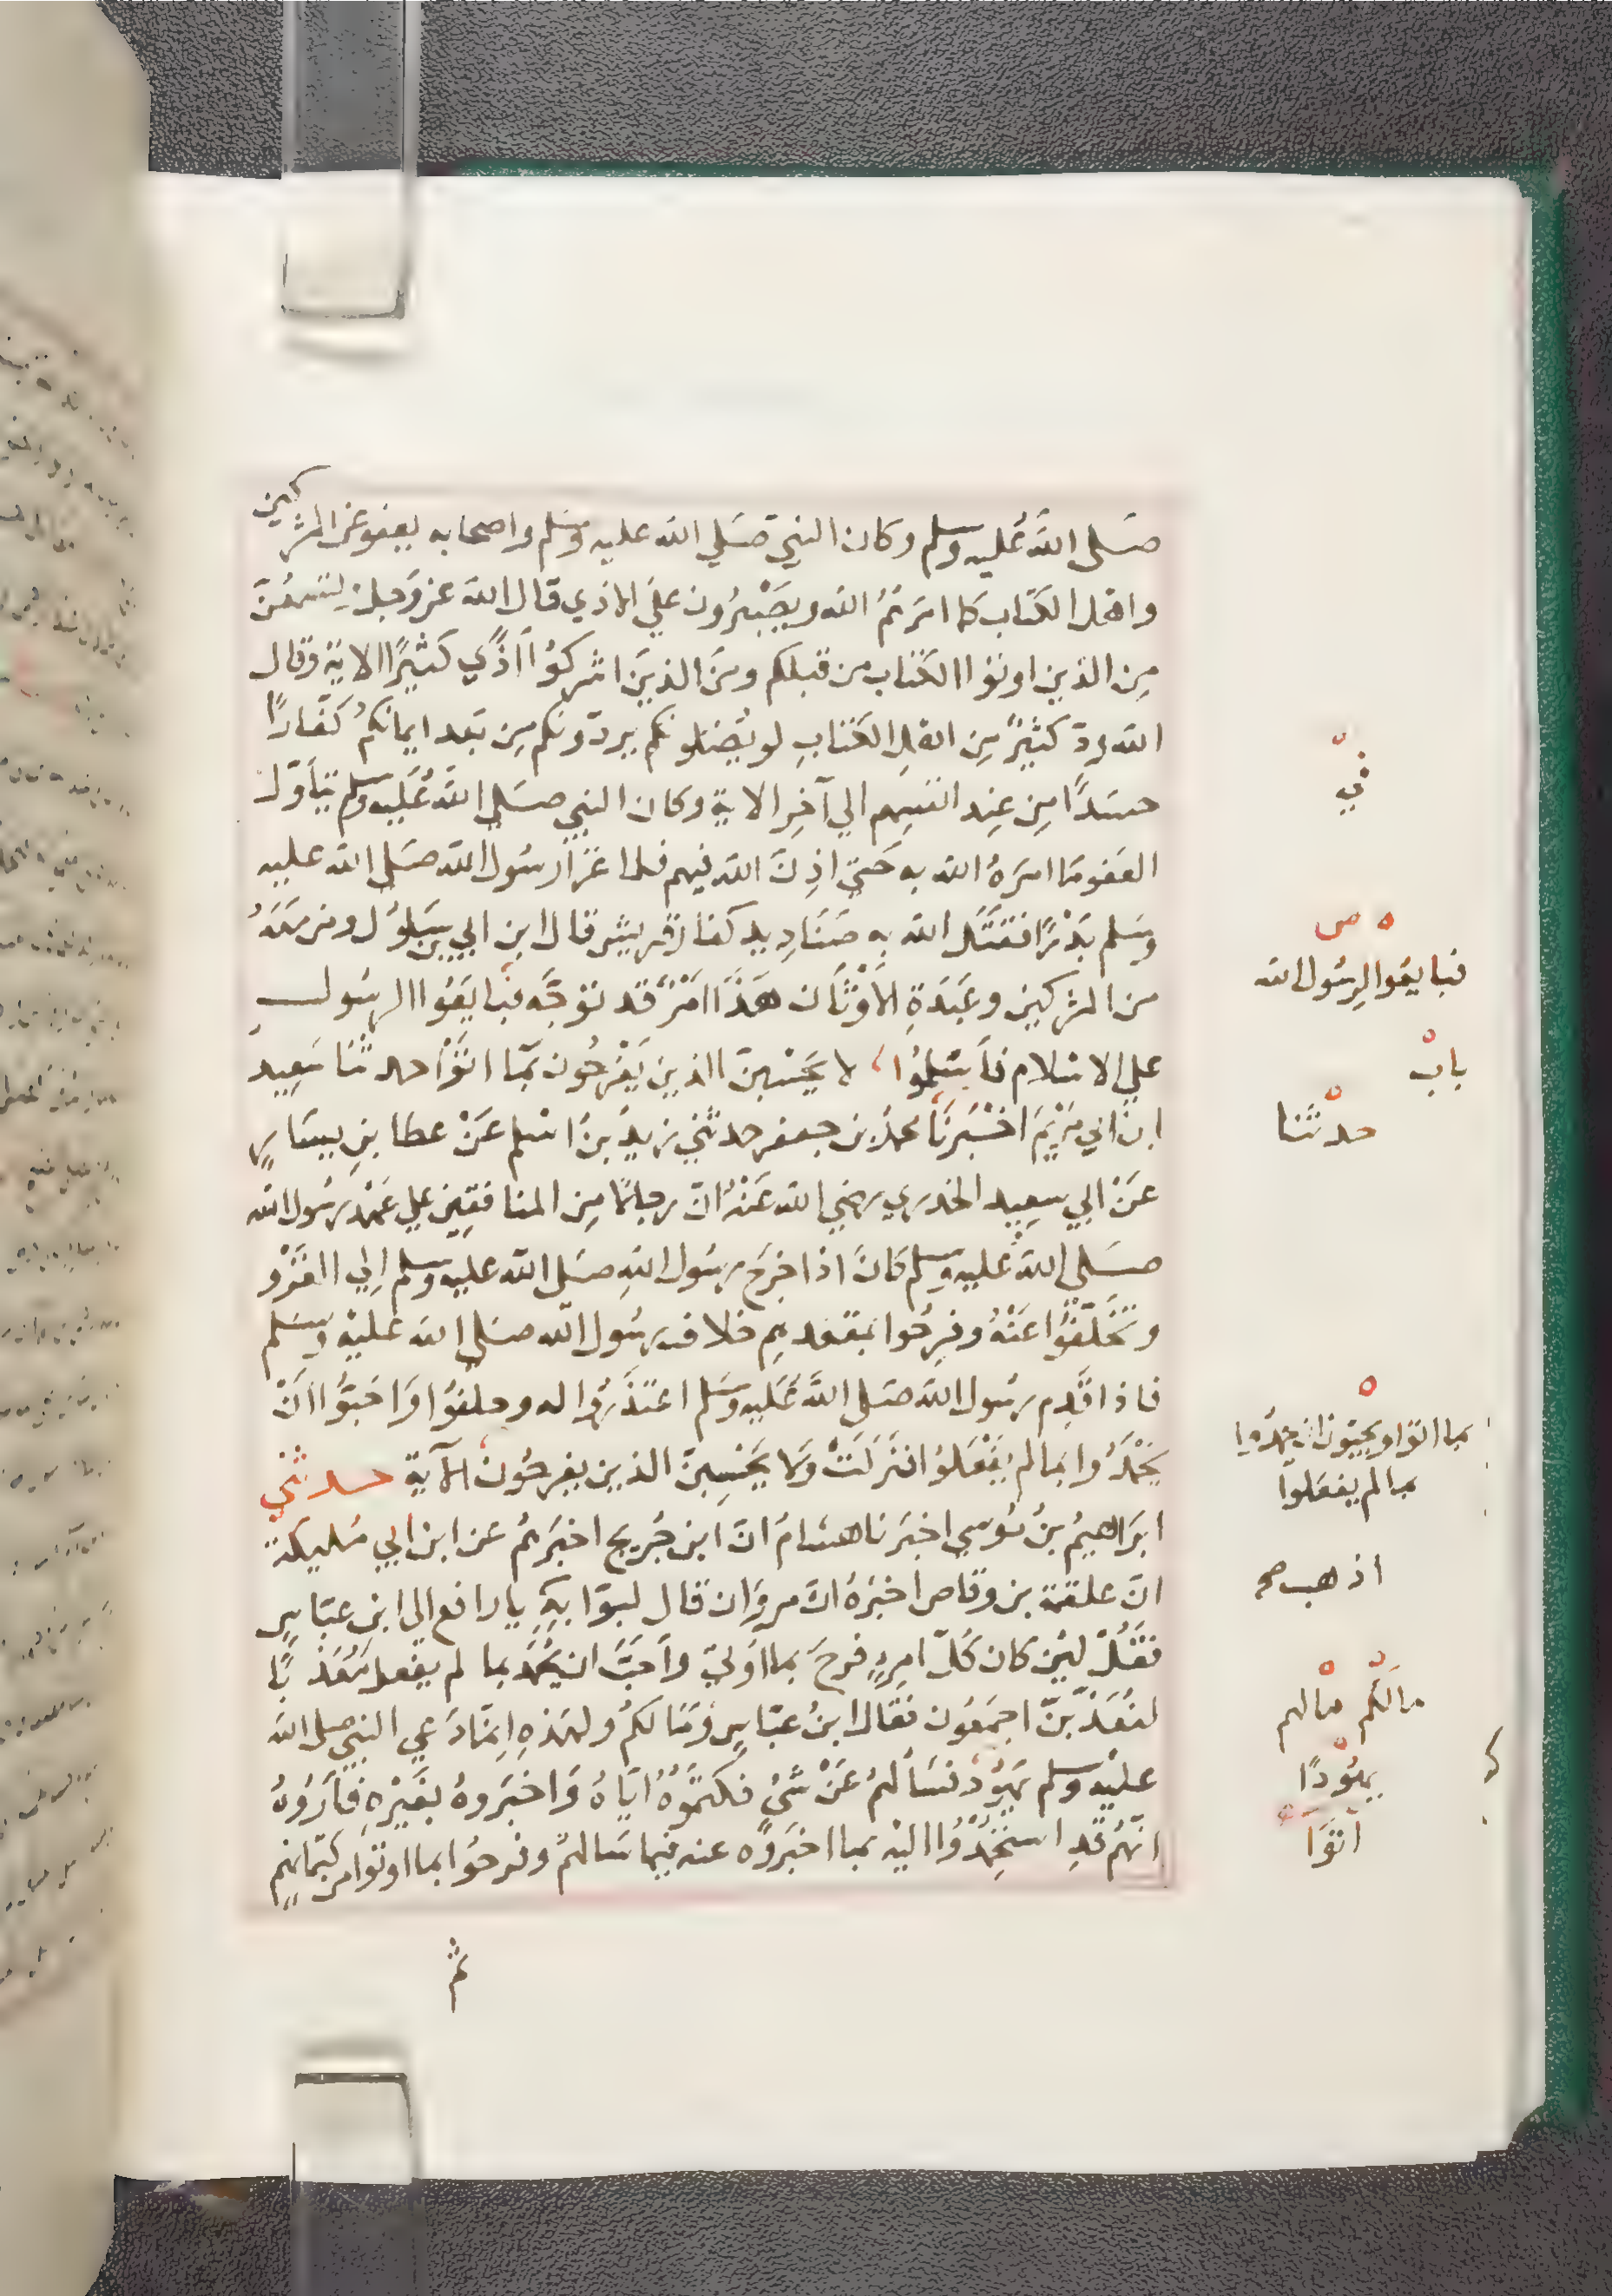 صَلى اللهُ عَليه وسلم وكان النبيّ صَلي الله عليه وسَلم واصحابه يعفو عن المشركين
واهل الكتاب كما امرَهُمُ الله ويَصْبِرُون علَى الاذي قال الله عز وَجل ولتسمعُنّ
مِن الذين اوتوا الكتاب من قبلكم ومنَ الذينَ اشركوُا اذًي كثيرًا الاية وقال
الله ودّ كثيرٌ مِن اهلِ الكتابِ لو يُضلونكم يردّونكم مِن بَعد ايمانكمُ كفّارًا
حسَدًا مِن عِند انفسِهم الي آخِر الاية وكان النبي صَلى اللهُ عَليه وسلم يتأوّل
العَفو مَا امرَهُ الله به حَتي اذِنَ الله فيهم فلما غزا رسُول الله صَلى الله عليه
وسَلم بَدْرًا فقتَلَ الله به صَنَادِيد كفار قريش قال ابن ابي بن سَلوُل ومن مَعَهُ
من المشركين وعَبَدَةِ الاَوْثَان هَذَا امْرٌ قد توَجَّه فبَايَعُوا الرسُول
علي الاسْلام فاَسْلمُوا لا يَحْسِبَنّ الذين يَفْرحُون بمَا اتَوْا حدثنَا سَعِيد
ابن ابي مَرْيَمَ اخْبَرنَا محمدُ بن جعفر حدثني زيدُ بنُ اسْلم عَنْ عطا بنِ يسَارٍ
عَنْ ابي سعِيد الخدري رضي الله عَنْهُ انّ رجالًا مِن المنافقِين علي عَهْد رسُول الله
صَلى الله عليه وسلم كانَ اذا خرَجَ رسُول اللهِ صَلى الله عليه وسَلم اِلي الغَزْو
وتخَلّفُوا عَنْهُ وفرِحُوا بمَقعَدِهِم خلاف رسُول الله صَلى الله عَليْه وسَلم
فاذا قَدِم رسُول الله صَلى اللهُ عَليه وسَلم اعتَذَرُوا له وحلفوُا وَاَحَبُّوا اَنْ
يُحْمَدُوا بمَا لم يَفْعَلوُا فنَزلَتْ وَلا يَحْسِبنّ الذين يفرحُون الآية حدثني
ابرَاهِيمُ بنُ مُوسي اخبرَنا هشامٌ انّ ابن جُريج اخبَرهُم عن ابن ابي مُليكة
انّ علقمة بن وقاص اخبَرهُ انّ مروَان قال لبوّابهِ يا رافع الي ابن عبّاسٍ
فقُلْ لئِن كان كُلّ امرِيٍ فرحَ بما اوُتيَ واَحَبَّ ان يُحْمَد بما لم يفعل مُعَذّبًا
لنُعَذّبَنّ اجمَعُون فقال ابنُ عبّاسٍ وَمَا لكمُ ولهذهِ اِنمَّا دَعي النبي صلى الله
عليْه وسلم يهَوُد فسَاَلهُم عَنْ شَيْ فكتمَوُهُ ايَاهُ وَاخبَروهُ بغَيْرِه فاَرَوْهُ
انّهُم قَدِ استَحْمَدُوا اليْه بما اخبَروُه عنه فيما سَالهمُ وفرحوُا بما اوتوا من كتمانِهِم
ثم
في
ه ص
فبايعُوا لِرسُول الله
بابْ
حدثَنا
بما اتوا ويحبّون ان يحمدُوا
بما لم يفعَلوا
اذهب صح
مالَكُم مالهم
يهُوْدًا
اتَوَا